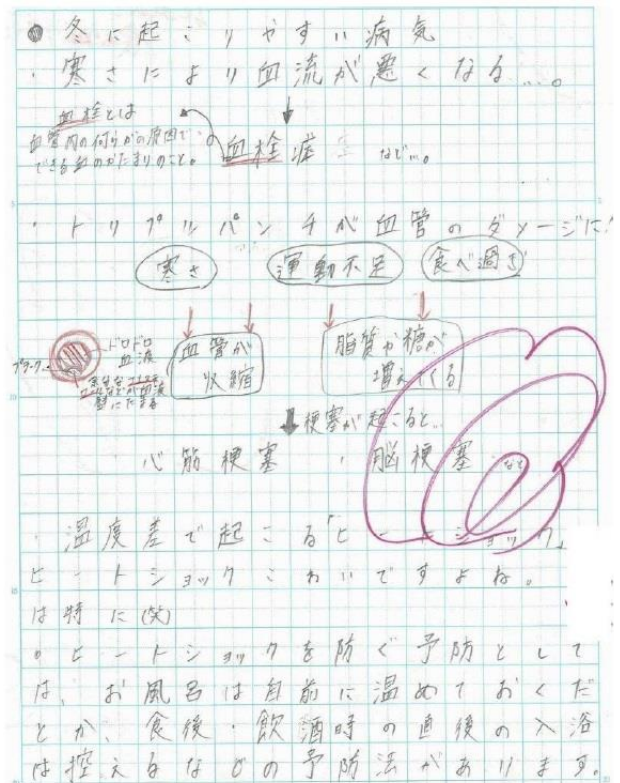 ● 冬に起こりやすい病気
・寒さにより血流が悪くなる…。
血栓とは
血管内の何らかの原因で
できる血のかたまりのこと。
血栓症 など…。
・トリプルパンチが血管のダメージに!
寒さ 運動不足 食べ過ぎ
プラーク
ドロドロ
血液
壁にたまる
血管が
収縮
脂質や糖が
増えてくる
梗塞が起こると…
心筋梗塞・脳梗塞 など
・温度差で起こる「ヒートショック」
ヒートショックこわいですよね。
は特に(笑)
。ヒートショックを防ぐ予防として
は、お風呂は自前に温めておくだ
とか、食後・飲酒時の直後の入浴
は控えるなどの予防法があります。